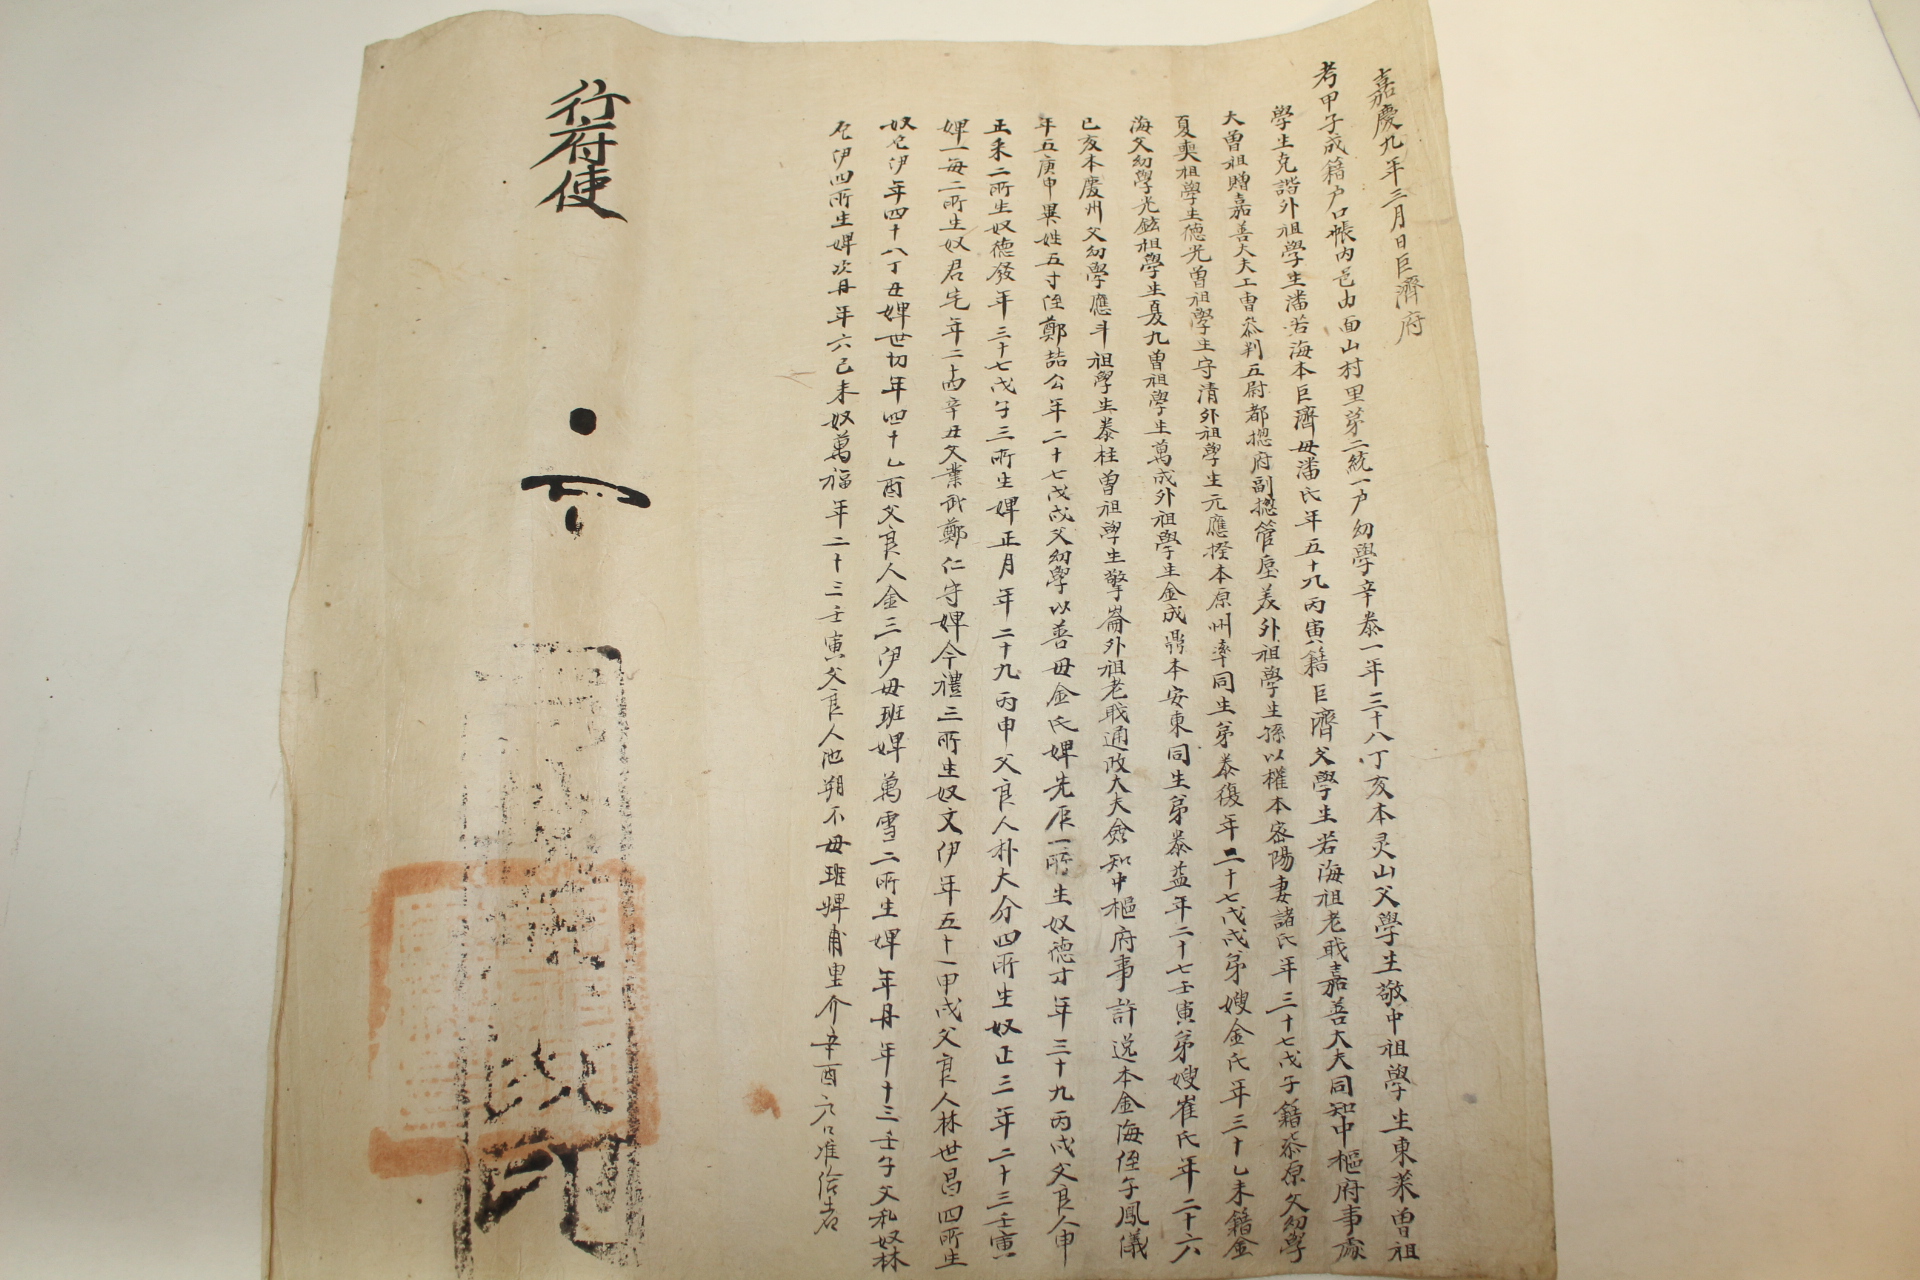 嘉慶九年三月日巨濟府
考甲子成籍户口帳內邑內面山村里第二統一户幼學辛泰一年三十八丁亥本灵山父學生敬中祖學生東萊曾祖
學生克諧外祖學生潘若海本巨濟母潘氏年五十九丙寅籍巨濟父學生若海祖老戢嘉善大夫同知中樞府事
大曾祖贈嘉善大夫工曹叅判五尉都揔府副揔管 外祖學生孫以權本密陽妻諸氏年三十七戊子籍柒原父幼學
夏奭祖學生德光曾祖學生守清外祖學生元應 本原州率同生弟泰復年二十七戊戌弟嫂金氏年三十乙未籍金
海父幼學光鉉祖學生夏九曾祖學生萬成外祖學生金成鼎本安東同生弟泰益年二十七壬寅弟嫂崔氏年二十六
己亥本慶州父幼學應斗祖學生泰柱曾祖學生擎崙外祖老戢通政大夫僉知中樞府事許逸本金海侄子鳳儀
年五庚申異姓五寸侄鄭喆公年二十七戊戌父幼學以善母金氏婢先 一所生奴德才年三十九丙戌父良人申
正采二所生奴德發年三十七戊子三所生婢正月年二十九丙申父良人朴大分四所生奴正三年二十三壬寅
婢一每二所生奴君先年二十四辛丑父業武鄭仁守婢今禮三所生奴文伊年五十一甲戌父良人林世昌四所生
奴 伊年四十八丁丑婢世切年四十乙酉父良人金三伊母班婢萬雪二所生婢年丹年十三壬子父私奴林
伊四所生婢次丹年六己未奴萬福年二十三壬寅父良人池朔不母班婢甫里介辛酉户口准給者
行府使
印